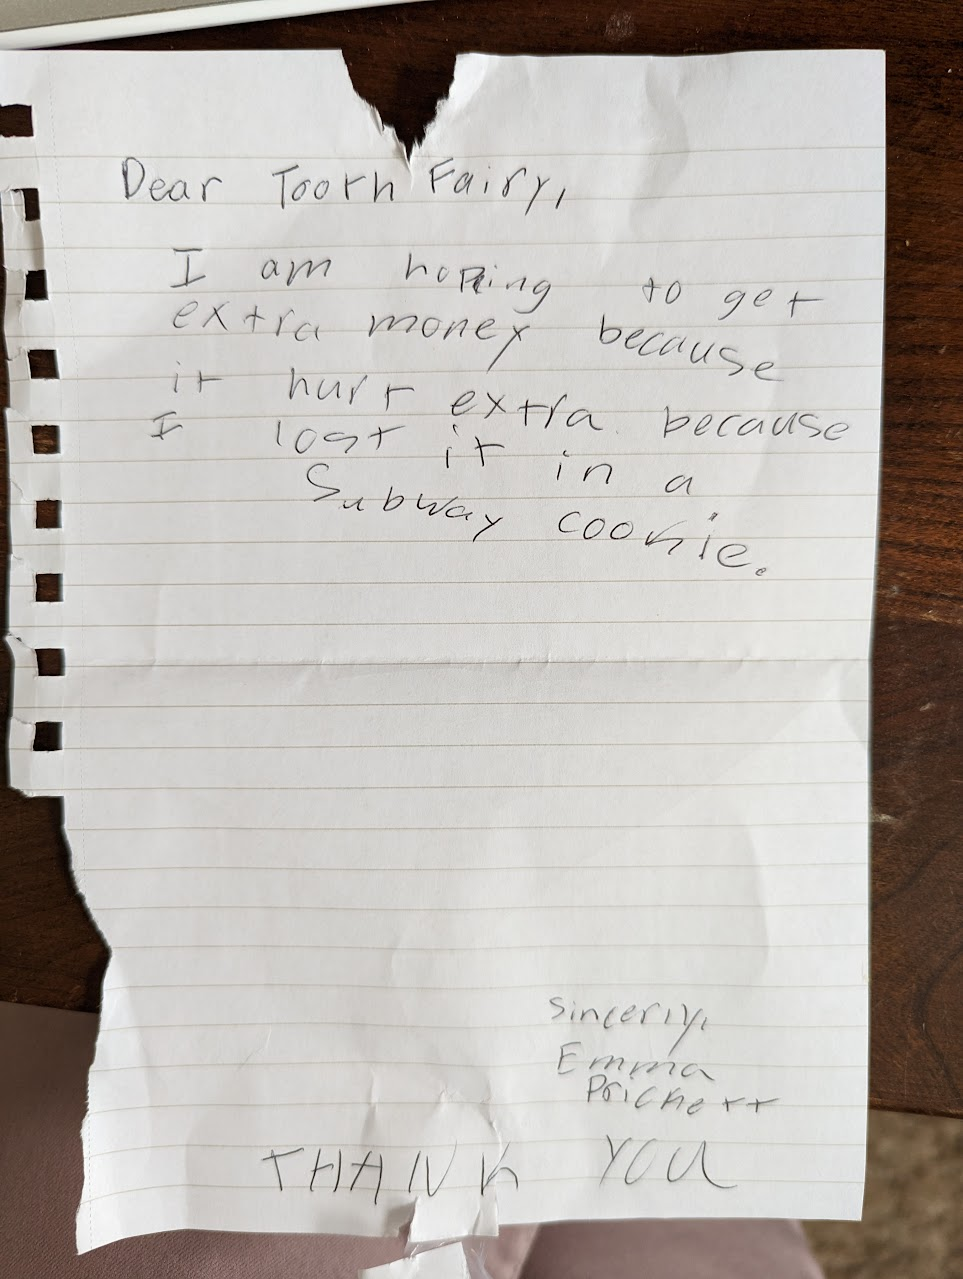 Dear Tooth Fairy,
I am hopping to get
extra money because
it hurt extra because
I lost it in a
Subway cookie.
Sincerly,
Emma
Prickett
THANK YOU